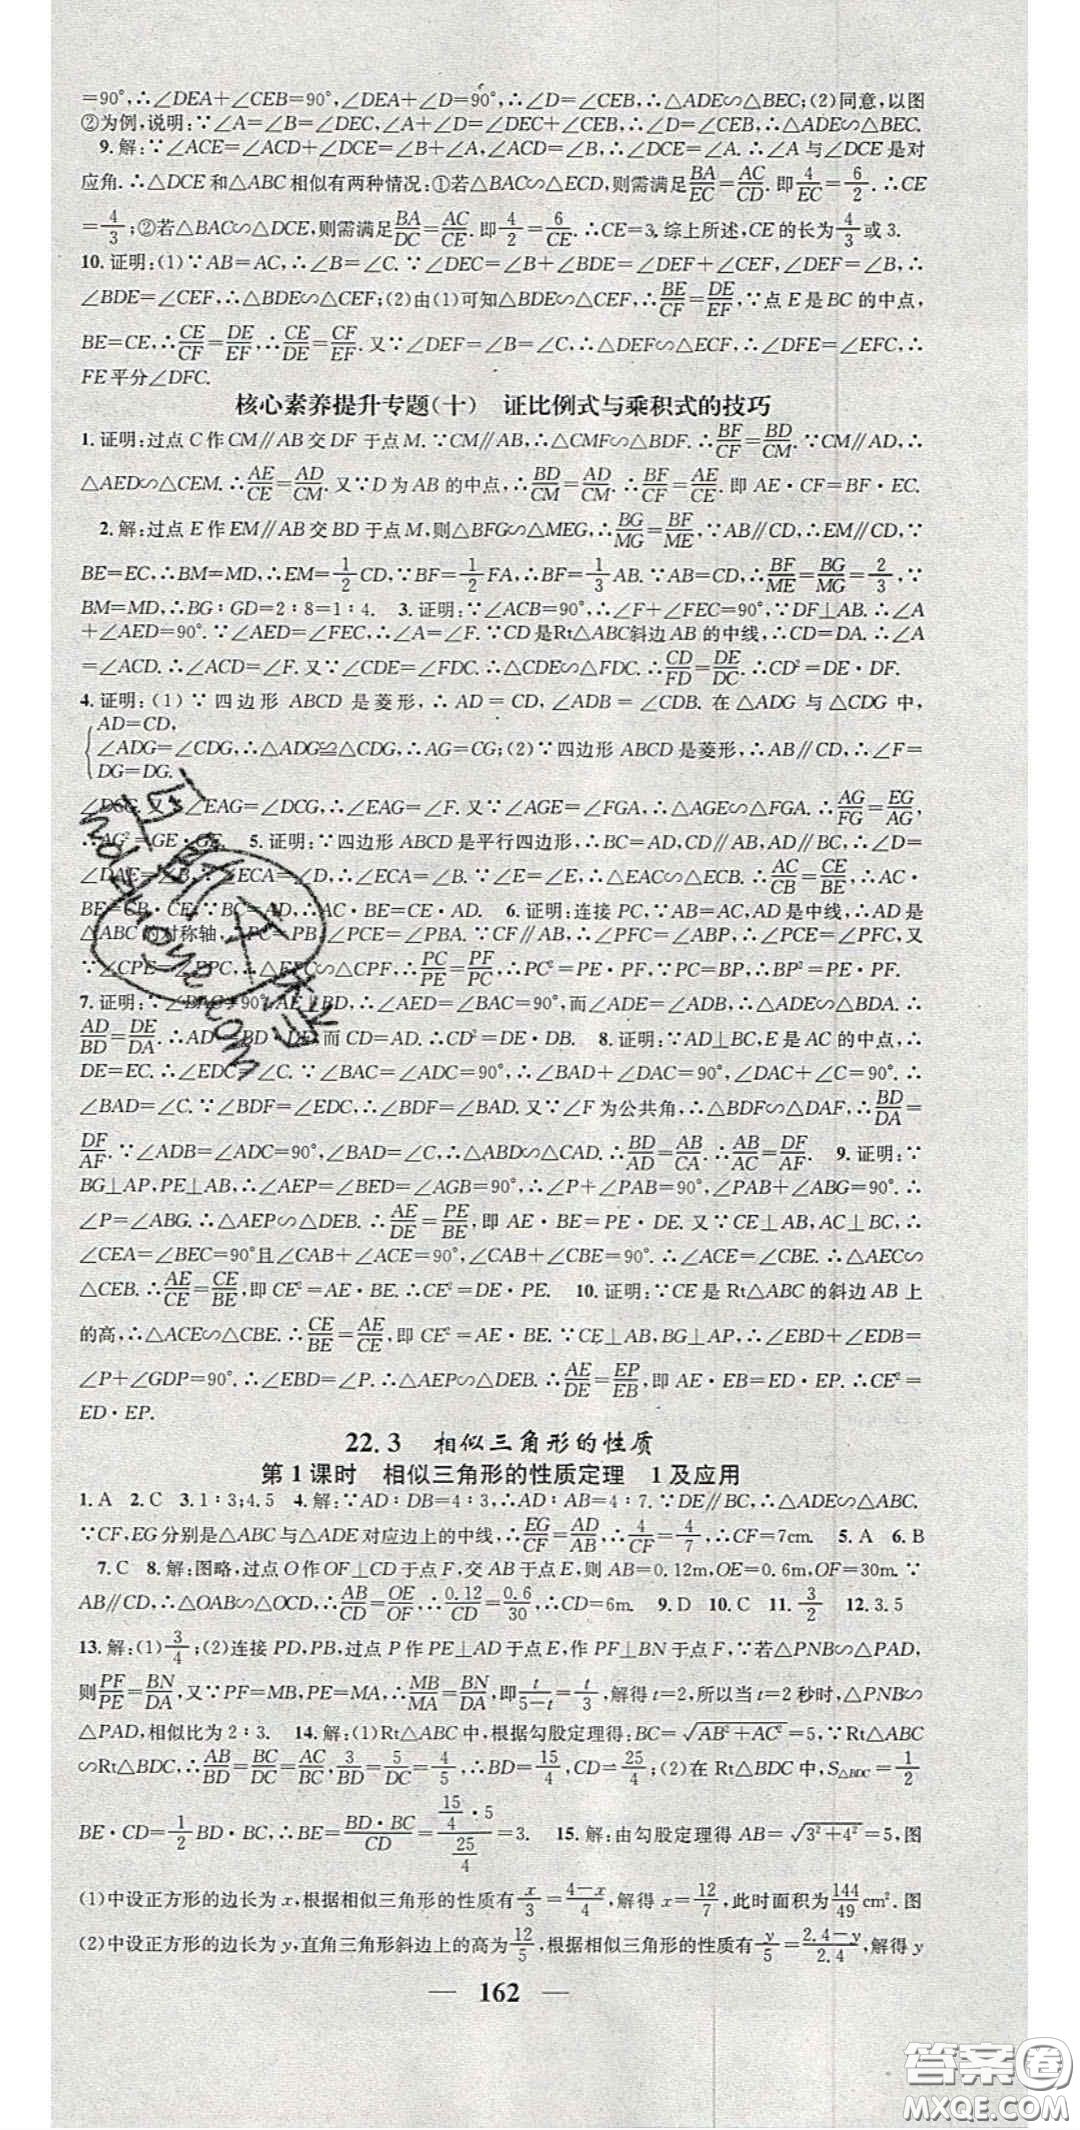 =90°,∴∠DEA+∠CEB=90°,∠DEA+∠D=90°,∴∠D=∠CEB,∴△ADE∽△BEC;(2)同意,以图
②为例,说明:∵∠A=∠B=∠DEC,∠A+∠D=∠DEC+∠CEB,∴∠D=∠CEB,∴△ADE∽△BEC.
9.解:∵∠ACE=∠ACD+∠DCE=∠B+∠A,∠ACD=∠B,∴∠DCE=∠A.∴∠A与∠DCE是对
应角.∴△DCE和△ABC相似有两种情况:①若△BAC∽△ECD,则需满足BA/EC=AC/CD.即4/EC=6/2.∴CE
=4/3;②若△BAC∽△DCE,则需满足BA/DC=AC/CE.即4/2=6/CE.∴CE=3.综上所述,CE的长为4/3或3.
10.证明:(1)∵AB=AC,∴∠B=∠C.∵∠DEC=∠B+∠BDE=∠DEF+∠CEF,∠DEF=∠B,∴
∠BDE=∠CEF,∴△BDE∽△CEF;(2)由(1)可知△BDE∽△CEF,∴BE/CF=DE/EF,∵点E是BC的中点,
BE=CE,∴CE/CF=DE/EF,∴CE/DE=CF/EF.又∵∠DEF=∠B=∠C,∴△DEF∽△ECF,∴∠DFE=∠EFC,∴
FE平分∠DFC.
核心素养提升专题(十) 证比例式与乘积式的技巧
1.证明:过点C作CM∥AB交DF于点M.∵CM∥AB,∴△CMF∽△BDF.∴BF/CF=BD/CM.∵CM∥AD,∴
△AED∽△CEM.∴AE/CE=AD/CM.又∵D为AB的中点,∴BD/CM=AD/CM.∴BF/CF=AE/CE.即AE·CF=BF·EC.
2.解:过点E作EM∥AB交BD于点M,则△BFG∽△MEG,∴BG/MG=BF/ME,∵AB∥CD,∴EM∥CD,∵
BE=EC,∴BM=MD,∴EM=1/2CD,∵BF=1/2FA,∴BF=1/3AB.∵AB=CD,∴BF/ME=BG/MG=2/3,∵
BM=MD,∴BG:GD=2:8=1:4. 3.证明:∵∠ACB=90°,∴∠F+∠FEC=90°,∵DF⊥AB.∴∠A
+∠AED=90°.∵∠AED=∠FEC,∴∠A=∠F.∵CD是Rt△ABC斜边AB的中线,∴CD=DA.∴∠A
=∠ACD.∴∠ACD=∠F.又∵∠CDE=∠FDC.∴△CDE∽△FDC.∴CD/FD=DE/DC.∴CD²=DE·DF.
4.证明:(1)∵四边形ABCD是菱形,∴AD=CD,∠ADB=∠CDB.在△ADG与△CDG中,
AD=CD,
∠ADG=∠CDG,∴△ADG≌△CDG,∴AG=CG;(2)∵四边形ABCD是菱形,∴AB∥CD,∴∠F=
DG=DG.
∠DCG.又∵∠EAG=∠DCG,∴∠EAG=∠F.又∵∠AGE=∠FGA,∴△AGE∽△FGA.∴AG/FG=EG/AG,
∴AG²=GE·GF. 5.证明:∵四边形ABCD是平行四边形,∴BC=AD,CD∥AB,AD∥BC,∴∠D=
∠DAE=∠B,∵∠ECA=∠D,∴∠ECA=∠B.∵∠E=∠E,∴△ECA∽△ECB.∴AC/CB=CE/BE,∴AC·
BE=CB·CE.∵BC=AD,∴AC·BE=CE·AD. 6.证明:连接PC,∵AB=AC,AD是中线,∴AD是
△ABC的对称轴,∴PC=PB,∠PCE=∠PBA.∵CF∥AB,∴∠PFC=∠ABP,∴∠PCE=∠PFC,又
∵∠CPE=∠FPC,∴△EPC∽△CPF,∴PC/PE=PF/PC,∴PC²=PE·PF,∵PC=BP,∴BP²=PE·PF.
7.证明:∵∠BAC=90°,AE⊥BD,∴∠AED=∠BAC=90°,而∠ADE=∠ADB,∴△ADE∽△BDA.∴
AD/BD=DE/DA.∴AD²=BD·DE.而CD=AD.∴CD²=DE·DB. 8.证明:∵AD⊥BC,E是AC的中点,∴
DE=EC.∴∠EDC=∠C.∵∠BAC=∠ADC=90°,∴∠BAD+∠DAC=90°,∠DAC+∠C=90°.∴
∠BAD=∠C.∵∠BDF=∠EDC,∴∠BDF=∠BAD.又∵∠F为公共角,∴△BDF∽△DAF,∴BD/DA=
DF/AF.∵∠ADB=∠ADC=90°,∠BAD=∠C,∴△ABD∽△CAD.∴BD/AD=AB/CA.∴AB/AC=DF/AF. 9.证明:∵
BG⊥AP,PE⊥AB,∴∠AEP=∠BED=∠AGB=90°,∴∠P+∠PAB=90°,∠PAB+∠ABG=90°.∴
∠P=∠ABG.∴△AEP∽△DEB.∴AE/DE=PE/BE,即AE·BE=PE·DE.又∵CE⊥AB,AC⊥BC,∴
∠CEA=∠BEC=90°且∠CAB+∠ACE=90°,∠CAB+∠CBE=90°,∴∠ACE=∠CBE.∴△AEC∽
△CEB.∴AE/CE=CE/BE,即CE²=AE·BE,∴CE²=DE·PE. 10.证明:∵CE是Rt△ABC的斜边AB上
的高,∴△ACE∽△CBE.∴CE/BE=AE/CE,即CE²=AE·BE.∵CE⊥AB,BG⊥AP,∴∠EBD+∠EDB=
∠P+∠GDP=90°.∴∠EBD=∠P.∴△AEP∽△DEB.∴AE/DE=EP/EB,即AE·EB=ED·EP.∴CE²=
ED·EP.
22.3 相似三角形的性质
第1课时 相似三角形的性质定理 1及应用
1.A 2.C 3.1:3;4.5 4.解:∵AD:DB=4:3,∴AD:AB=4:7.∵DE∥BC,∴△ADE∽△ABC.
∵CF,EG分别是△ABC与△ADE对应边上的中线,∴EG/CF=AD/AB,∴4/CF=4/7,∴CF=7cm. 5.A 6.B
7.C 8.解:图略,过点O作OF⊥CD于点F,交AB于点E,则AB=0.12m,OE=0.6m,OF=30m.∵
AB∥CD,∴△OAB∽△OCD,∴AB/CD=OE/OF,∴0.12/CD=0.6/30,∴CD=6m. 9.D 10.C 11.3/2 12.3.5
13.解:(1)3/4;(2)连接PD,PB,过点P作PE⊥AD于点E,作PF⊥BN于点F,∵若△PNB∽△PAD,
则PF/PE=BN/DA,又∵PF=MB,PE=MA,∴MB/MA=BN/DA,即t/5-t=t/3,解得t=2,所以当t=2秒时,△PNB∽
△PAD,相似比为2:3. 14.解:(1)Rt△ABC中,根据勾股定理得:BC=√AB²+AC²=5,∵Rt△ABC
∽Rt△BDC,∴AB/BD=BC/DC=AC/BC,3/BD=5/DC=4/5,∴BD=15/4,CD=25/4;(2)在Rt△BDC中,S△BDC=1/2
BE·CD=1/2BD·BC,∴BE=BD·BC/CD=15/4·5/25/4=3. 15.解:由勾股定理得AB=√3²+4²=5,图
(1)中设正方形的边长为x,根据相似三角形的性质有x/3=4-x/4,解得x=12/7,此时面积为144/49cm².图
(2)中设正方形的边长为y,直角三角形斜边上的高为12/5,根据相似三角形的性质有y/5=2.4-y/2.4,解得y
— 162 —
答案圈
MXQE.COM